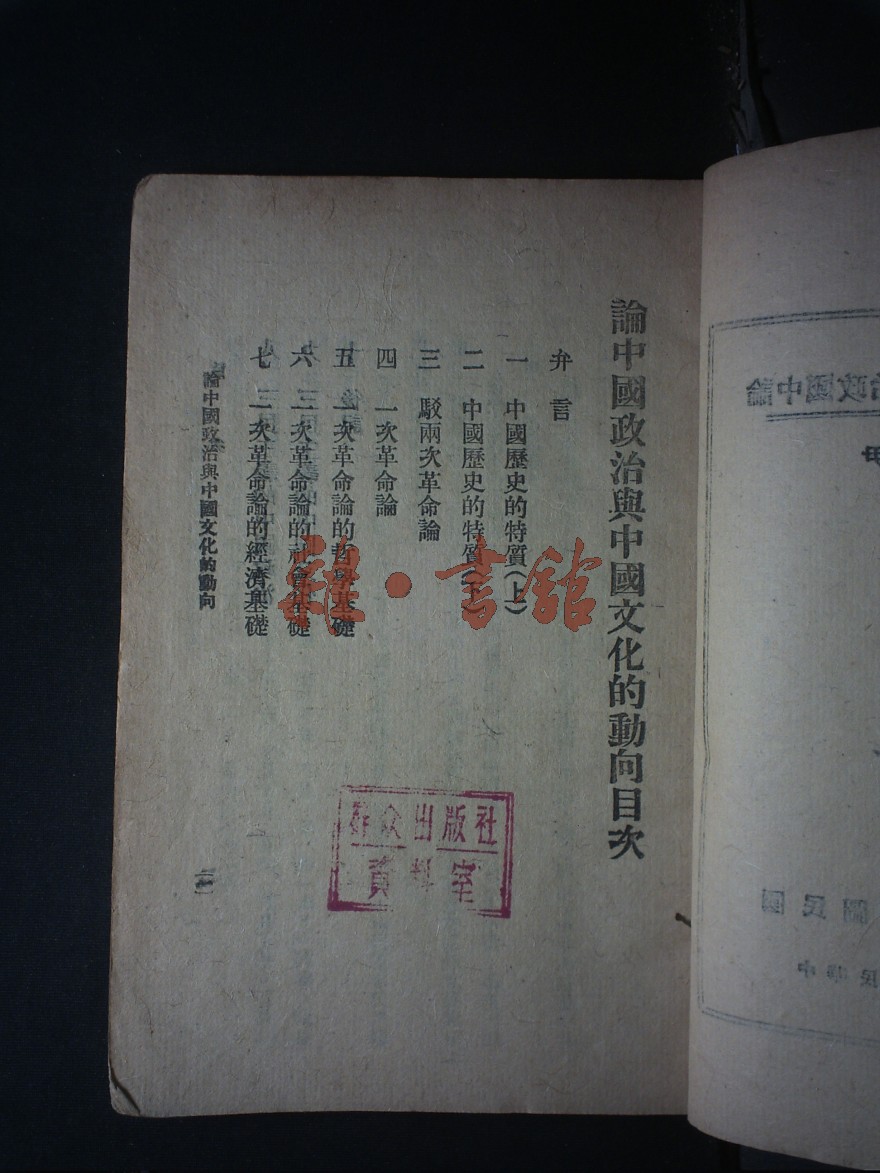 論中國政治與中國文化的動向目次
弁言
一 中國歷史的特質(上)
二 中國歷史的特質(下)
三 駁兩次革命論
四 一次革命論
五 一次革命論的哲學基礎
六 一次革命論的社會基礎
七 一次革命論的經濟基礎
論中國政治與中國文化的動向
群众出版社
資料室
雜·書館
論中國政治
國民圖
中華民